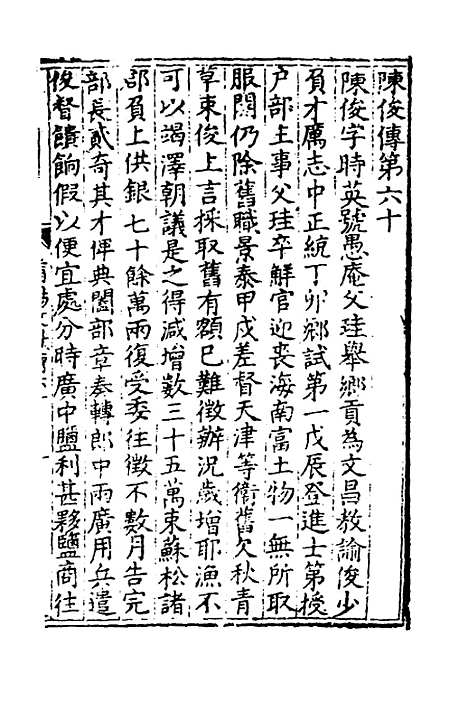 陳俊傳第六十
陳俊字時英號愚庵父珪舉鄉貢為文昌教諭俊少
負才厲志中正統丁卯鄉試第一戊辰登進士第授
户部主事父珪卒鮮官迎丧海南富土物一無所取
服闋仍除舊職景泰甲戌差督天津等衛舊欠秋青
草束俊上言採取舊有額已難徴辦况歲增耶漁不
可以竭澤朝議是之得减增數三十五萬束蘇松諸
郡負上供銀七十餘萬兩復受委往徴不數月告完
部長貳奇其才俾典闔部章奏轉郎中兩廣用兵遣
俊督饋餉假以便宜處分時廣中鹽利甚夥鹽商往